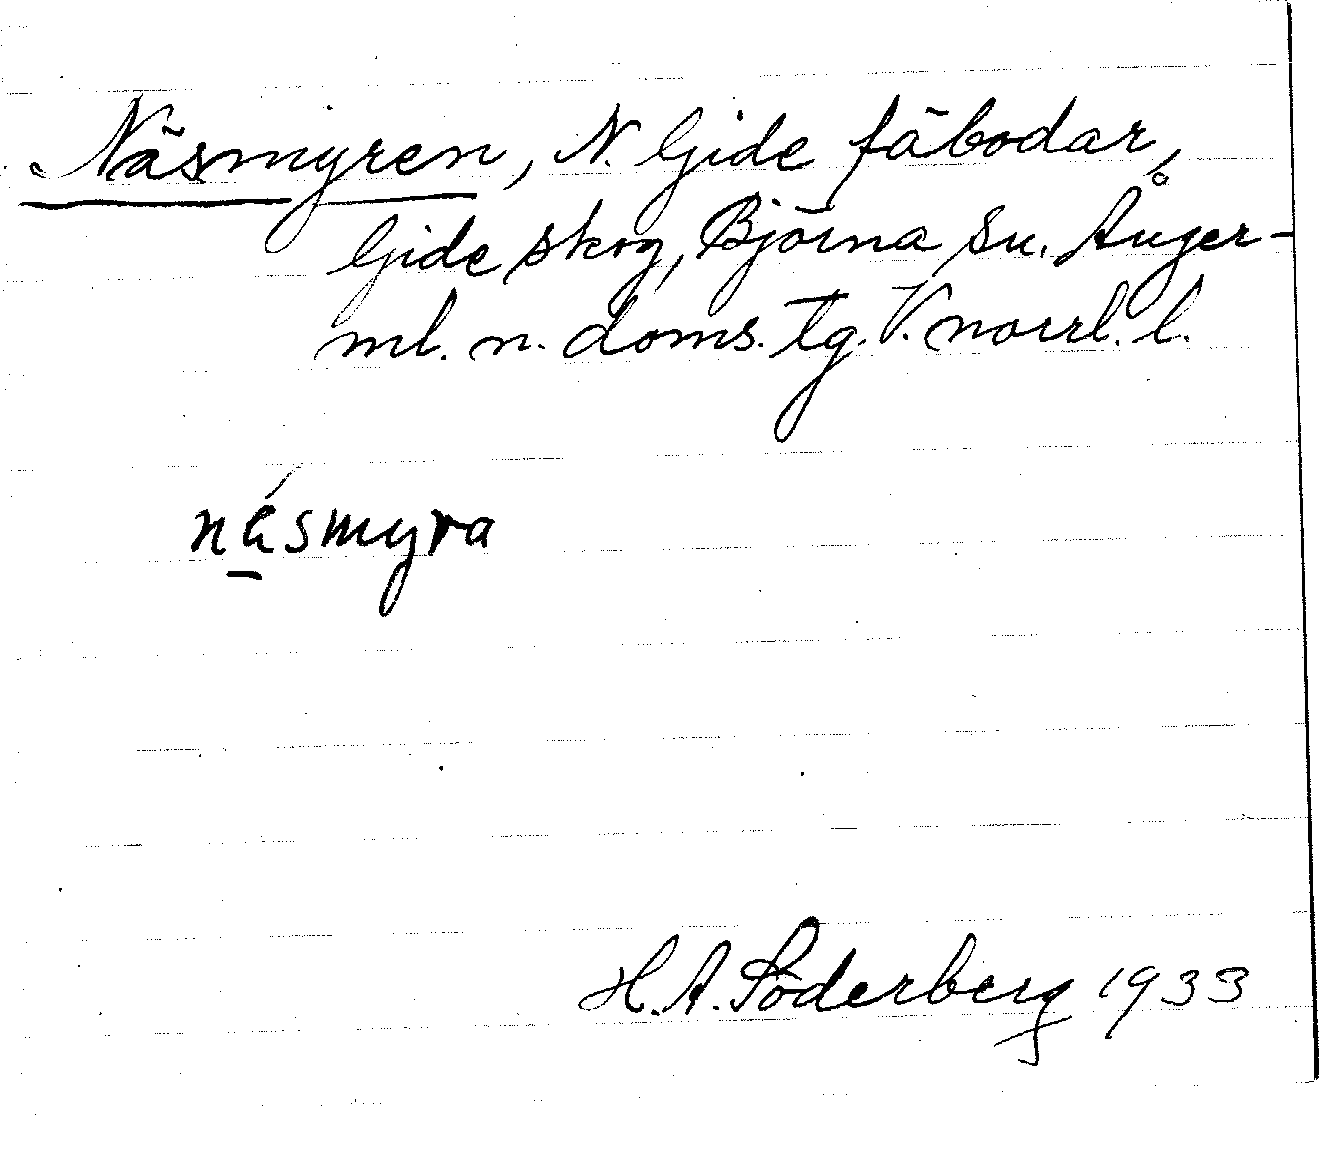 Näsmyren, N. Gide fäbodar,
Gide skog, Björna sn. Ånger-
ml. n. doms. tg. V. norrl. l.
näsmyra
H. A. Söderberg 1933